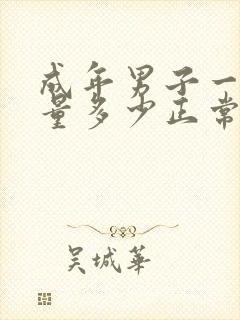 成年男子一
量多少正常
吴城华